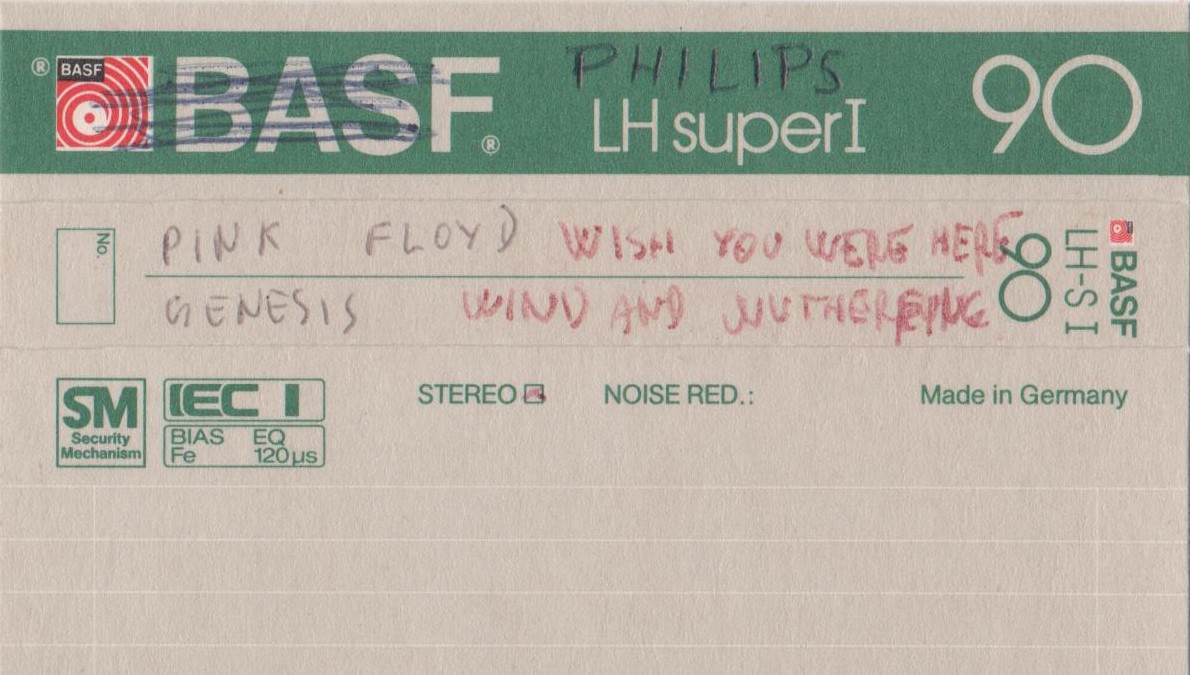 ® BASF BASF ® PHILIPS
LH super I 90
No. PINK FLOYD WISH YOU WERE HERE
GENESIS WIND AND WUTHERING
90 LH-S I BASF
SM Security Mechanism
IEC I
BIAS EQ
Fe 120 µs
STEREO NOISE RED.: Made in Germany